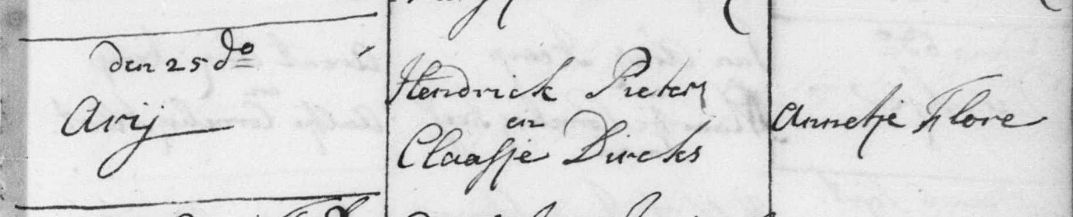 den 25 do
Arij
Hendrick Pieters
en
Claasje Dircks
Annetje Flore